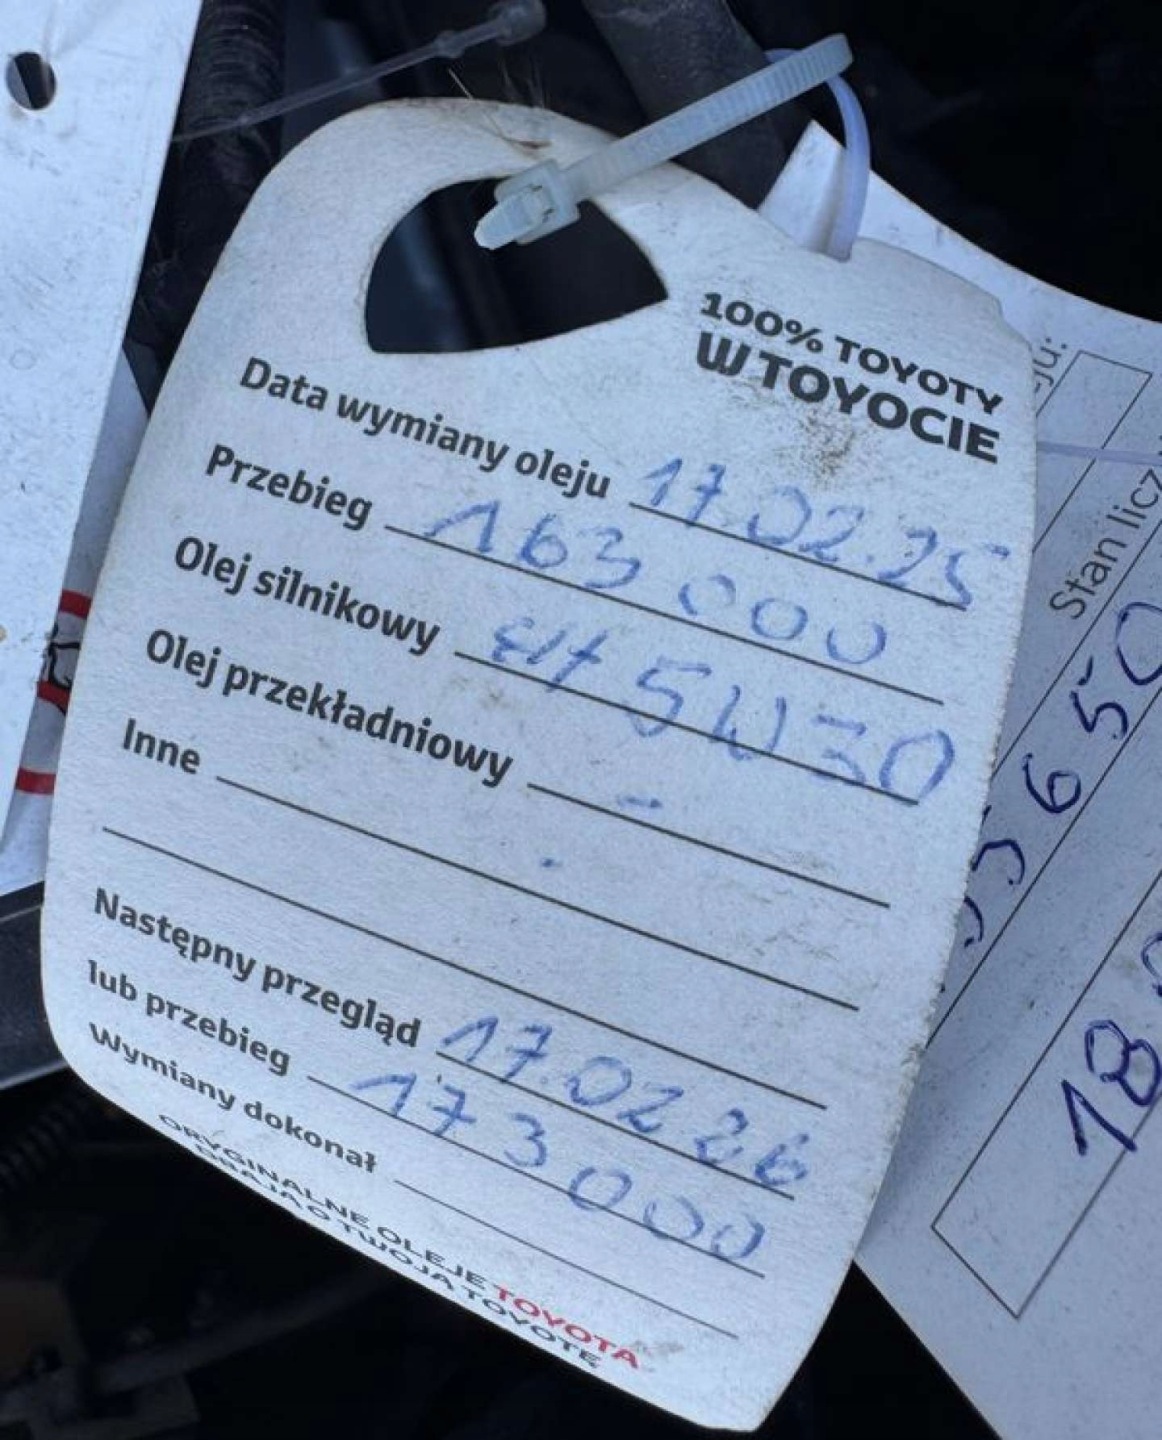 100% TOYOTY
W TOYOCIE
Data wymiany oleju 17.02.25
Przebieg 163 000
Olej silnikowy 5W30
Olej przekładniowy -
Inne
Następny przegląd 17.02.26
lub przebieg 173 000
Wymiany dokonał
ORYGINALNE OLEJE TOYOTA
DBAJĄ O TWOJĄ TOYOTĘ
Stan licz
5650
18